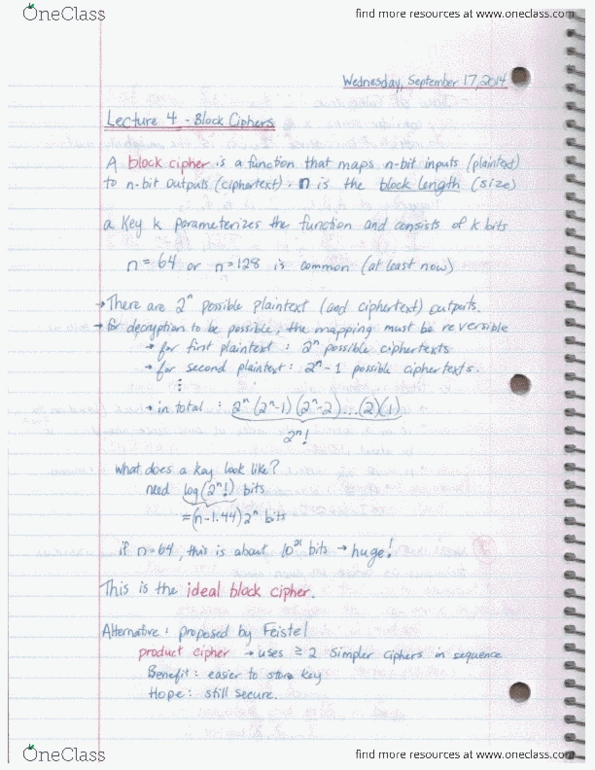 OneClass
find more resources at www.oneclass.com
Wednesday, September 17, 2014
Lecture 4 - Block Ciphers
A block cipher is a function that maps n-bit inputs (plaintext)
to n-bit outputs (ciphertext). n is the block length (size)
a key k parameterizes the function and consists of k bits
n = 64 or n = 128 is common (at least now)
→ There are 2ⁿ possible plaintext (and ciphertext) outputs.
→ for decryption to be possible, the mapping must be reversible
→ for first plaintext : 2ⁿ possible ciphertexts
→ for second plaintext : 2ⁿ - 1 possible ciphertexts.
⋮
→ in total : 2ⁿ (2ⁿ-1) (2ⁿ-2) ... (2)(1)
2ⁿ!
What does a key look like?
need log(2ⁿ!) bits
≈ (n-1.44) 2ⁿ bits
if n=64, this is about 10²¹ bits → huge!
This is the ideal block cipher.
Alternative : proposed by Feistel
product cipher → uses ≥ 2 simpler ciphers in sequence
Benefit : easier to store key
Hope : still secure.
OneClass
find more resources at www.oneclass.com